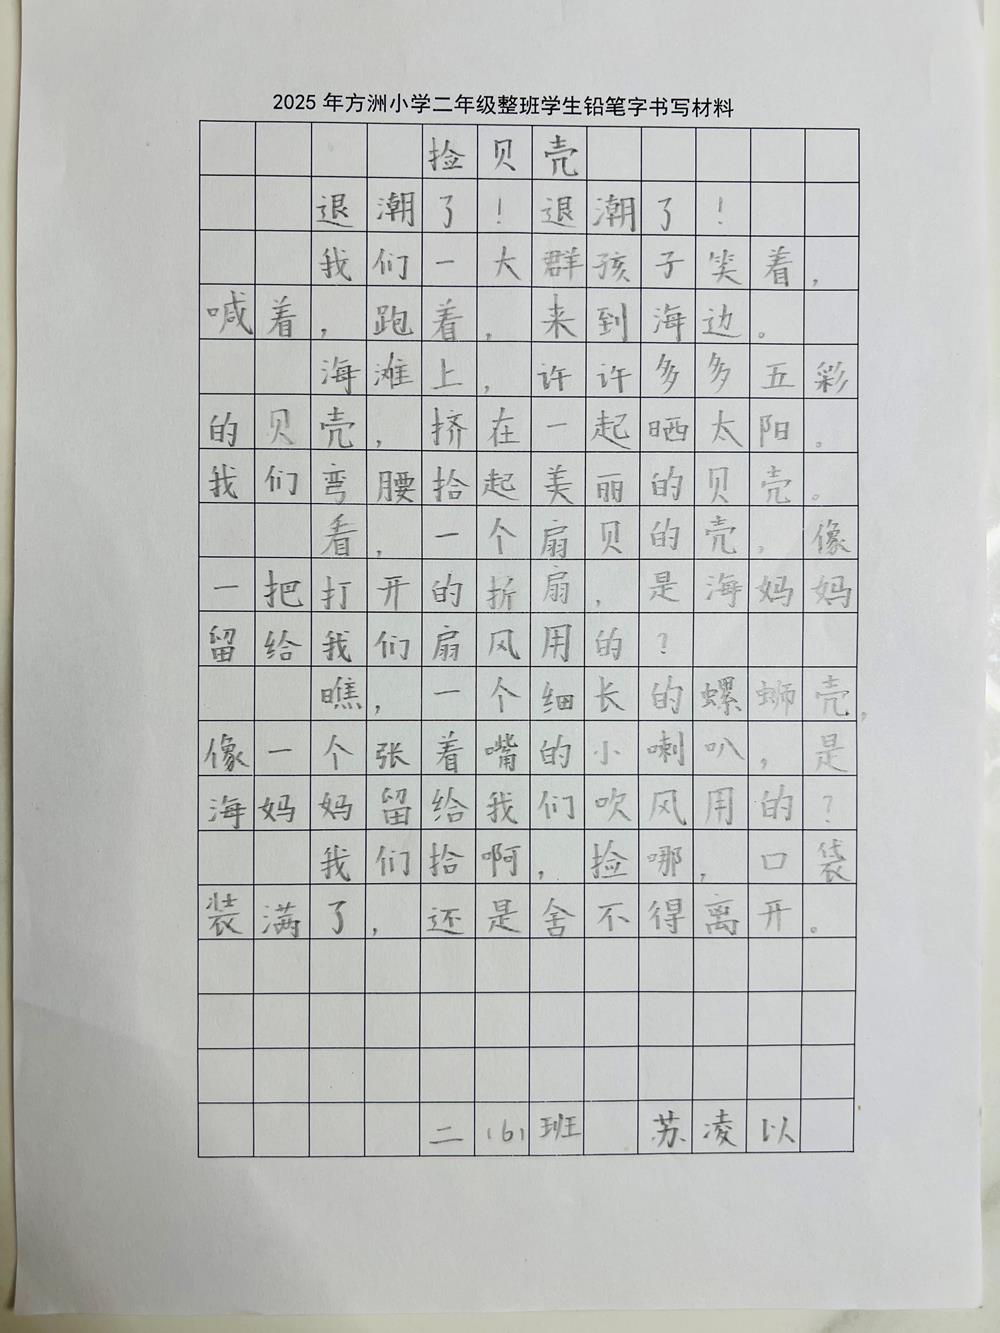 2025年方洲小学二年级整班学生铅笔字书写材料
捡贝壳
退潮了！退潮了！
我们一大群孩子笑着，
喊着，跑着，来到海边。
海滩上，许许多多五彩
的贝壳，挤在一起晒太阳。
我们弯腰拾起美丽的贝壳。
看，一个扇贝的壳，像
一把打开的折扇，是海妈妈
留给我们扇风用的？
瞧，一个细长的螺蛳壳，
像一个张着嘴的小喇叭，是
海妈妈留给我们吹风用的？
我们拾啊，捡哪，口袋
装满了，还是舍不得离开。
二（6）班 苏凌以